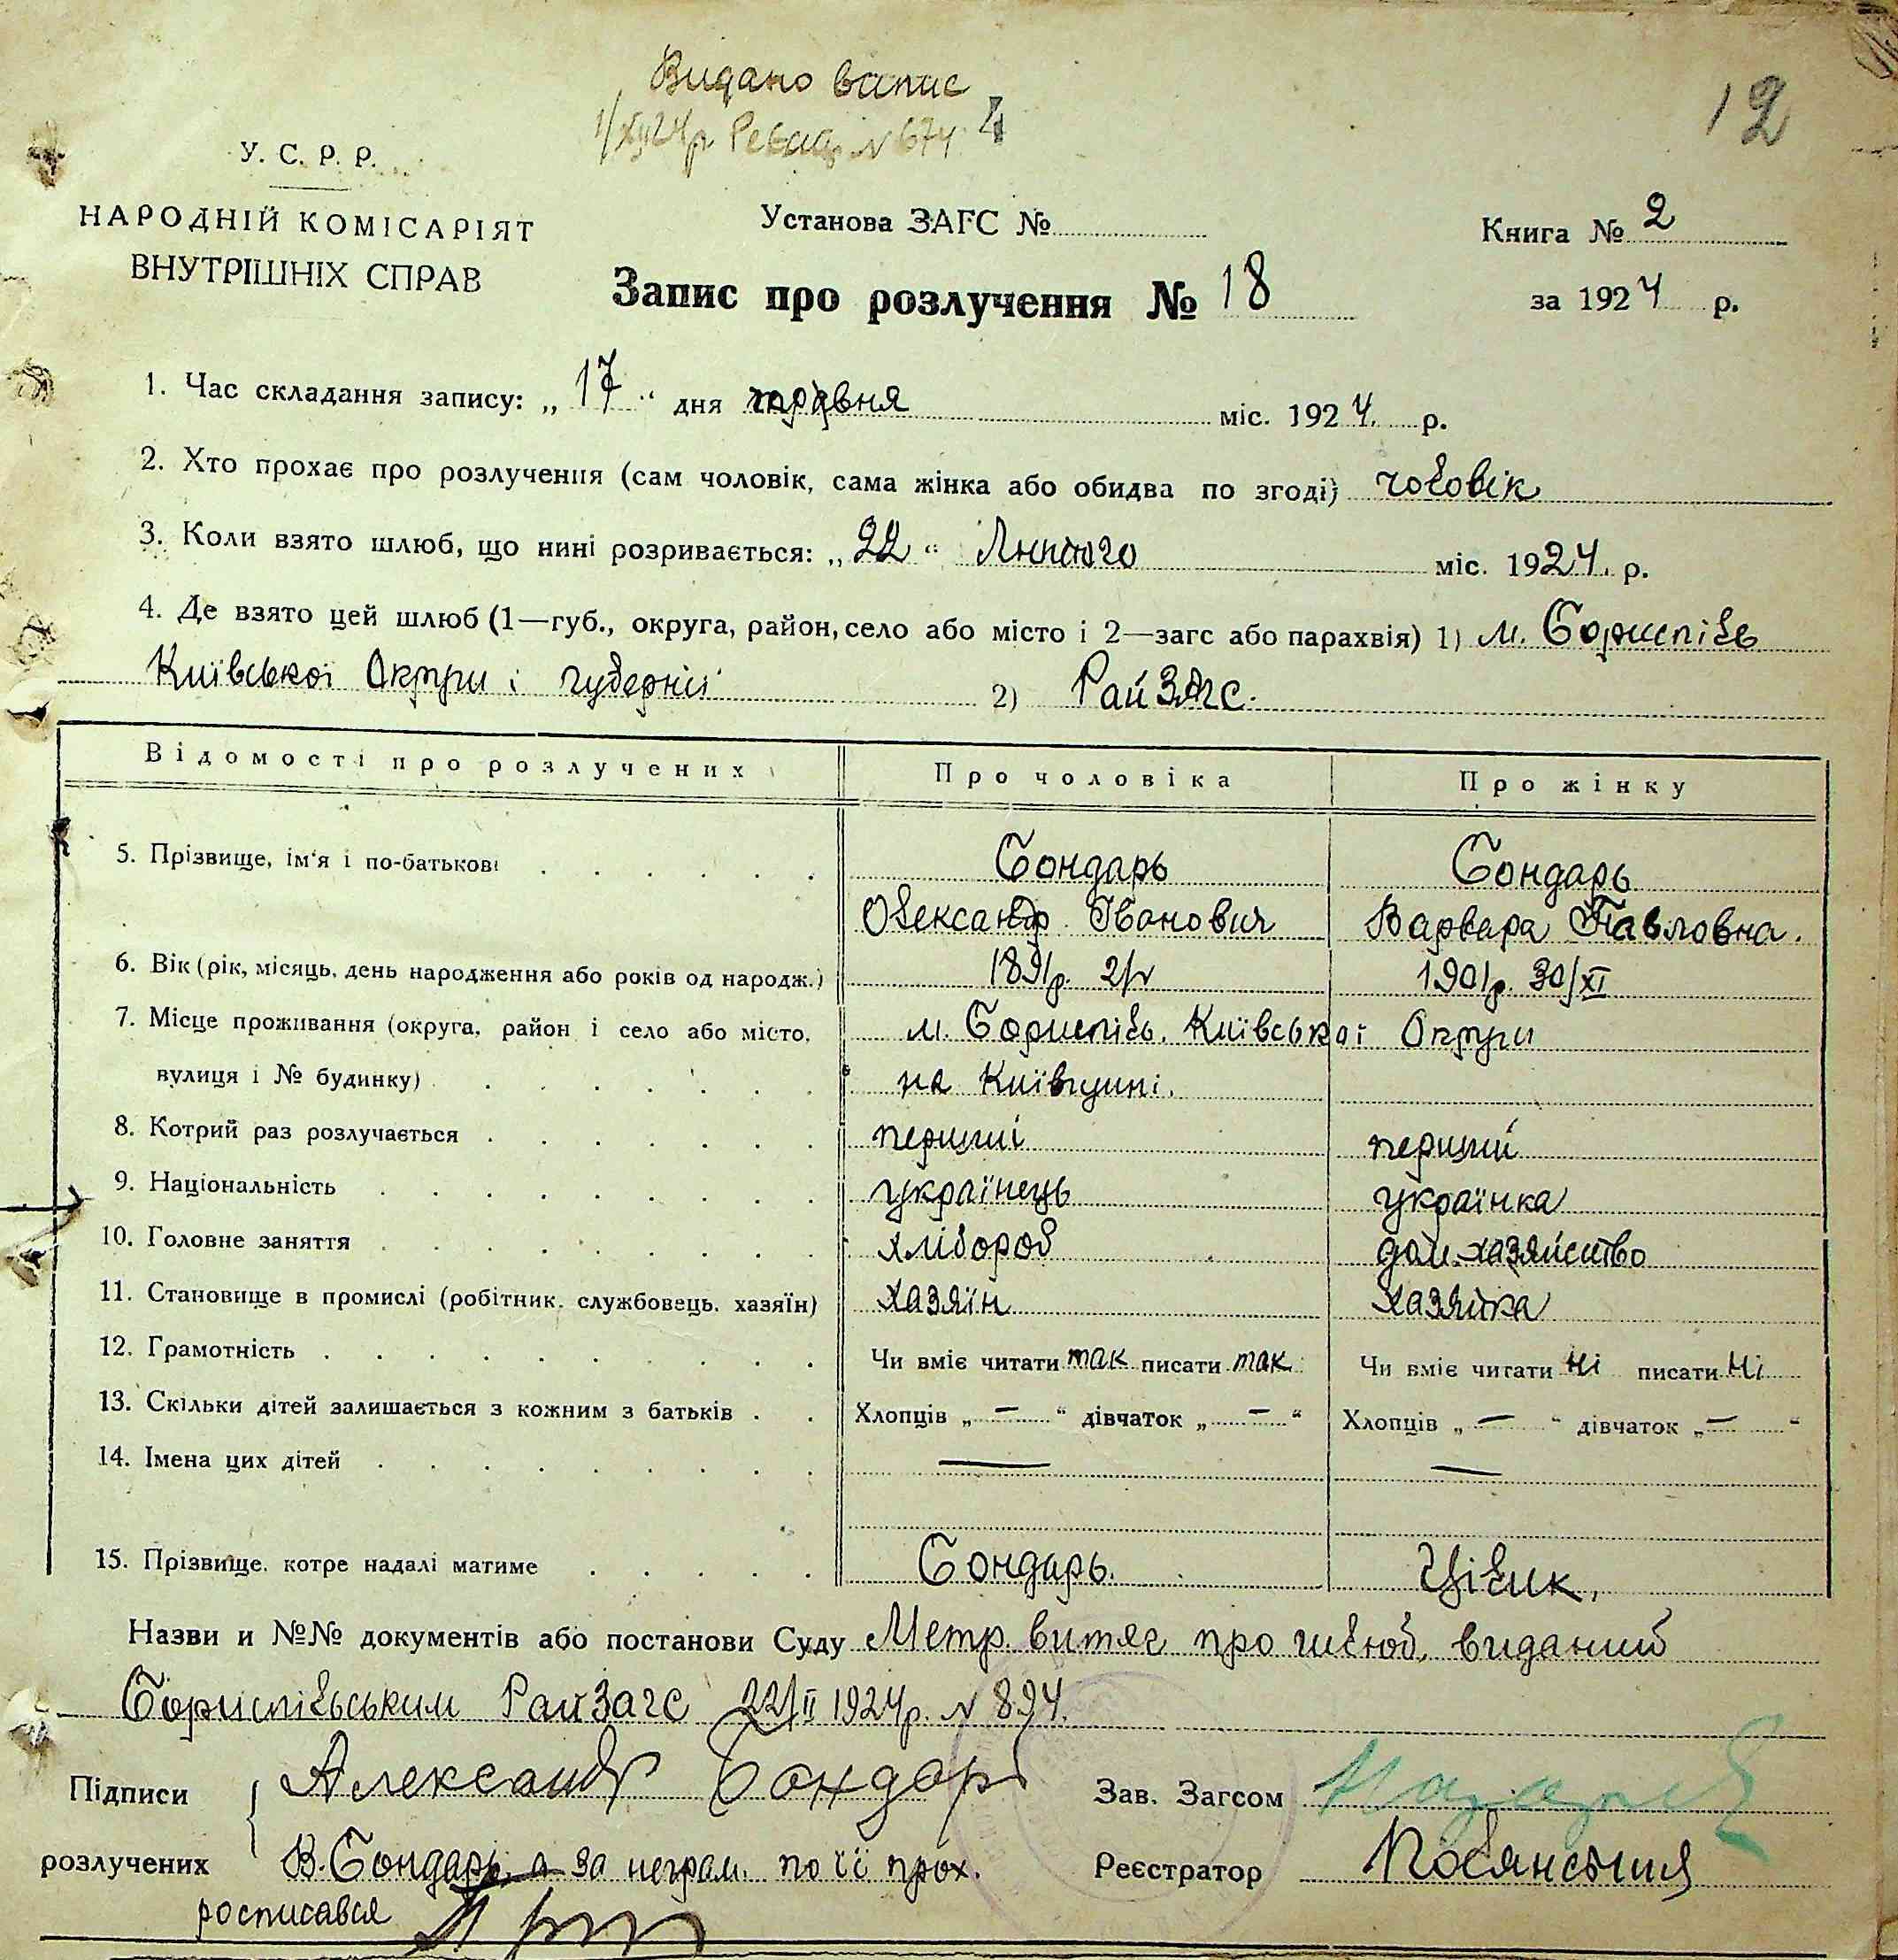 Видано випис 4
1/XII 24 р. № 674
12
У. С. Р. Р.
НАРОДНІЙ КОМІСАРІЯТ
ВНУТРІШНІХ СПРАВ
Установа ЗАГС №
Книга № 2
Запис про розлучення № 18
за 1924 р.
1. Час складання запису: „ 17 “ дня травня міс. 1924. р.
2. Хто прохає про розлучення (сам чоловік, сама жінка або обидва по згоді) чоловік
3. Коли взято шлюб, що нині розривається: „ 22 “ Лютого міс. 1924. р.
4. Де взято цей шлюб (1—губ., округа, район, село або місто і 2—загс або парахвія) 1) м. Бориспіль
Київської Округи і губернії 2) РайЗАГС.
Відомості про розлучених Про чоловіка Про жінку
5. Прізвище, ім'я і по-батькові Бондарь Бондарь
Олександр Іванович Варвара Павловна.
6. Вік (рік, місяць, день народження або років од народж.) 1891р. 2/V 1901р. 30/XI
7. Місце проживання (округа, район і село або місто, м. Бориспіль, Київської Округи
вулиця і № будинку) на Київщині.
8. Котрий раз розлучається перший перший
9. Національність українець українка
10. Головне заняття хлібороб дом. хазяйство
11. Становище в промислі (робітник, службовець, хазяїн) хазяїн хазяйка
12. Грамотність Чи вміє читати так писати так Чи вміє читати ні писати ні
13. Скільки дітей залишається з кожним з батьків Хлопців „ — “ дівчаток „ — “ Хлопців „ — “ дівчаток „ — “
14. Імена цих дітей — —
15. Прізвище, котре надалі матиме Бондарь. Цілик.
Назви и №№ документів або постанови Суду Метр. витяг про шлюб, виданий
Бориспільським РайЗагс 22/II 1924р. № 894.
Підписи Александр Бондарь Зав. Загсом
розлучених В. Бондарь, а за неграм. по її прох. Реєстратор
росписався